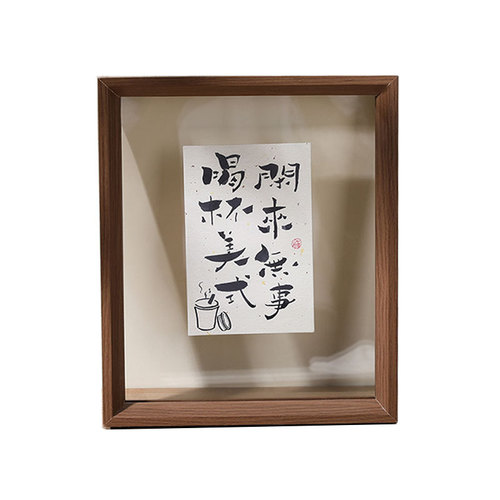 閑來無事
喝杯美式